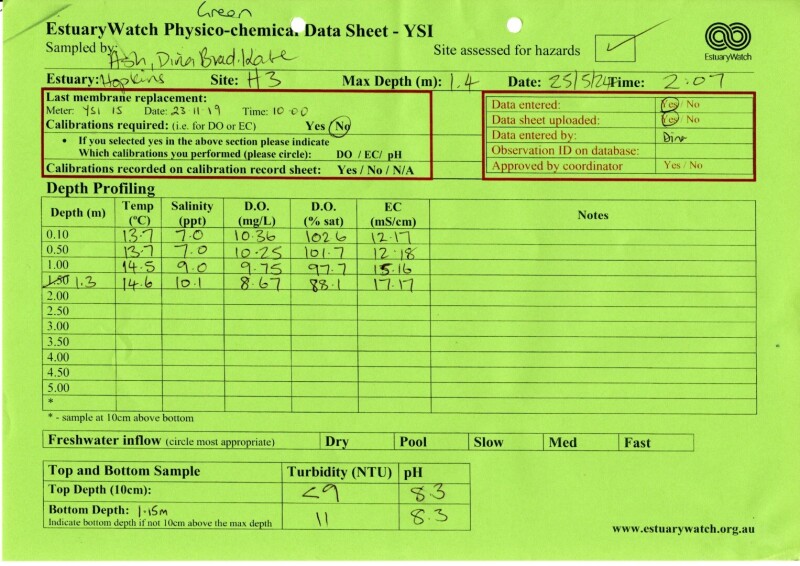 Green
EstuaryWatch Physico-chemical Data Sheet - YSI
Sampled by: Ash, Dina Brad. Kate
Site assessed for hazards ✓
EstuaryWatch
Estuary: Hopkins Site: H3 Max Depth (m): 1.4 Date: 25/5/24 Time: 2:07
Last membrane replacement:
Meter: YSI 15 Date: 23 11 19 Time: 10:00
Calibrations required: (i.e. for DO or EC) Yes / No
• If you selected yes in the above section please indicate
Which calibrations you performed (please circle): DO / EC/ pH
Calibrations recorded on calibration record sheet: Yes / No / N/A
Data entered: Yes / No
Data sheet uploaded: Yes / No
Data entered by: Dina
Observation ID on database:
Approved by coordinator Yes / No
Depth Profiling
Depth (m) Temp (ºC) Salinity (ppt) D.O. (mg/L) D.O. (% sat) EC (mS/cm) Notes
0.10 13.7 7.0 10.36 102.6 12.17
0.50 13.7 7.0 10.25 101.7 12.18
1.00 14.5 9.0 9.75 97.7 15.16
1.50 1.3 14.6 10.1 8.67 88.1 17.17
2.00
2.50
3.00
3.50
4.00
4.50
5.00
*
* - sample at 10cm above bottom
Freshwater inflow (circle most appropriate) Dry Pool Slow Med Fast
Top and Bottom Sample Turbidity (NTU) pH
Top Depth (10cm): <9 8.3
Bottom Depth: 1.15m 11 8.3
Indicate bottom depth if not 10cm above the max depth
www.estuarywatch.org.au